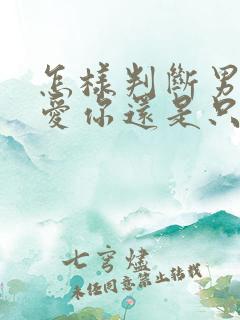 怎樣判斷男
愛你還是只
七穹燼
未經同意禁止轉載